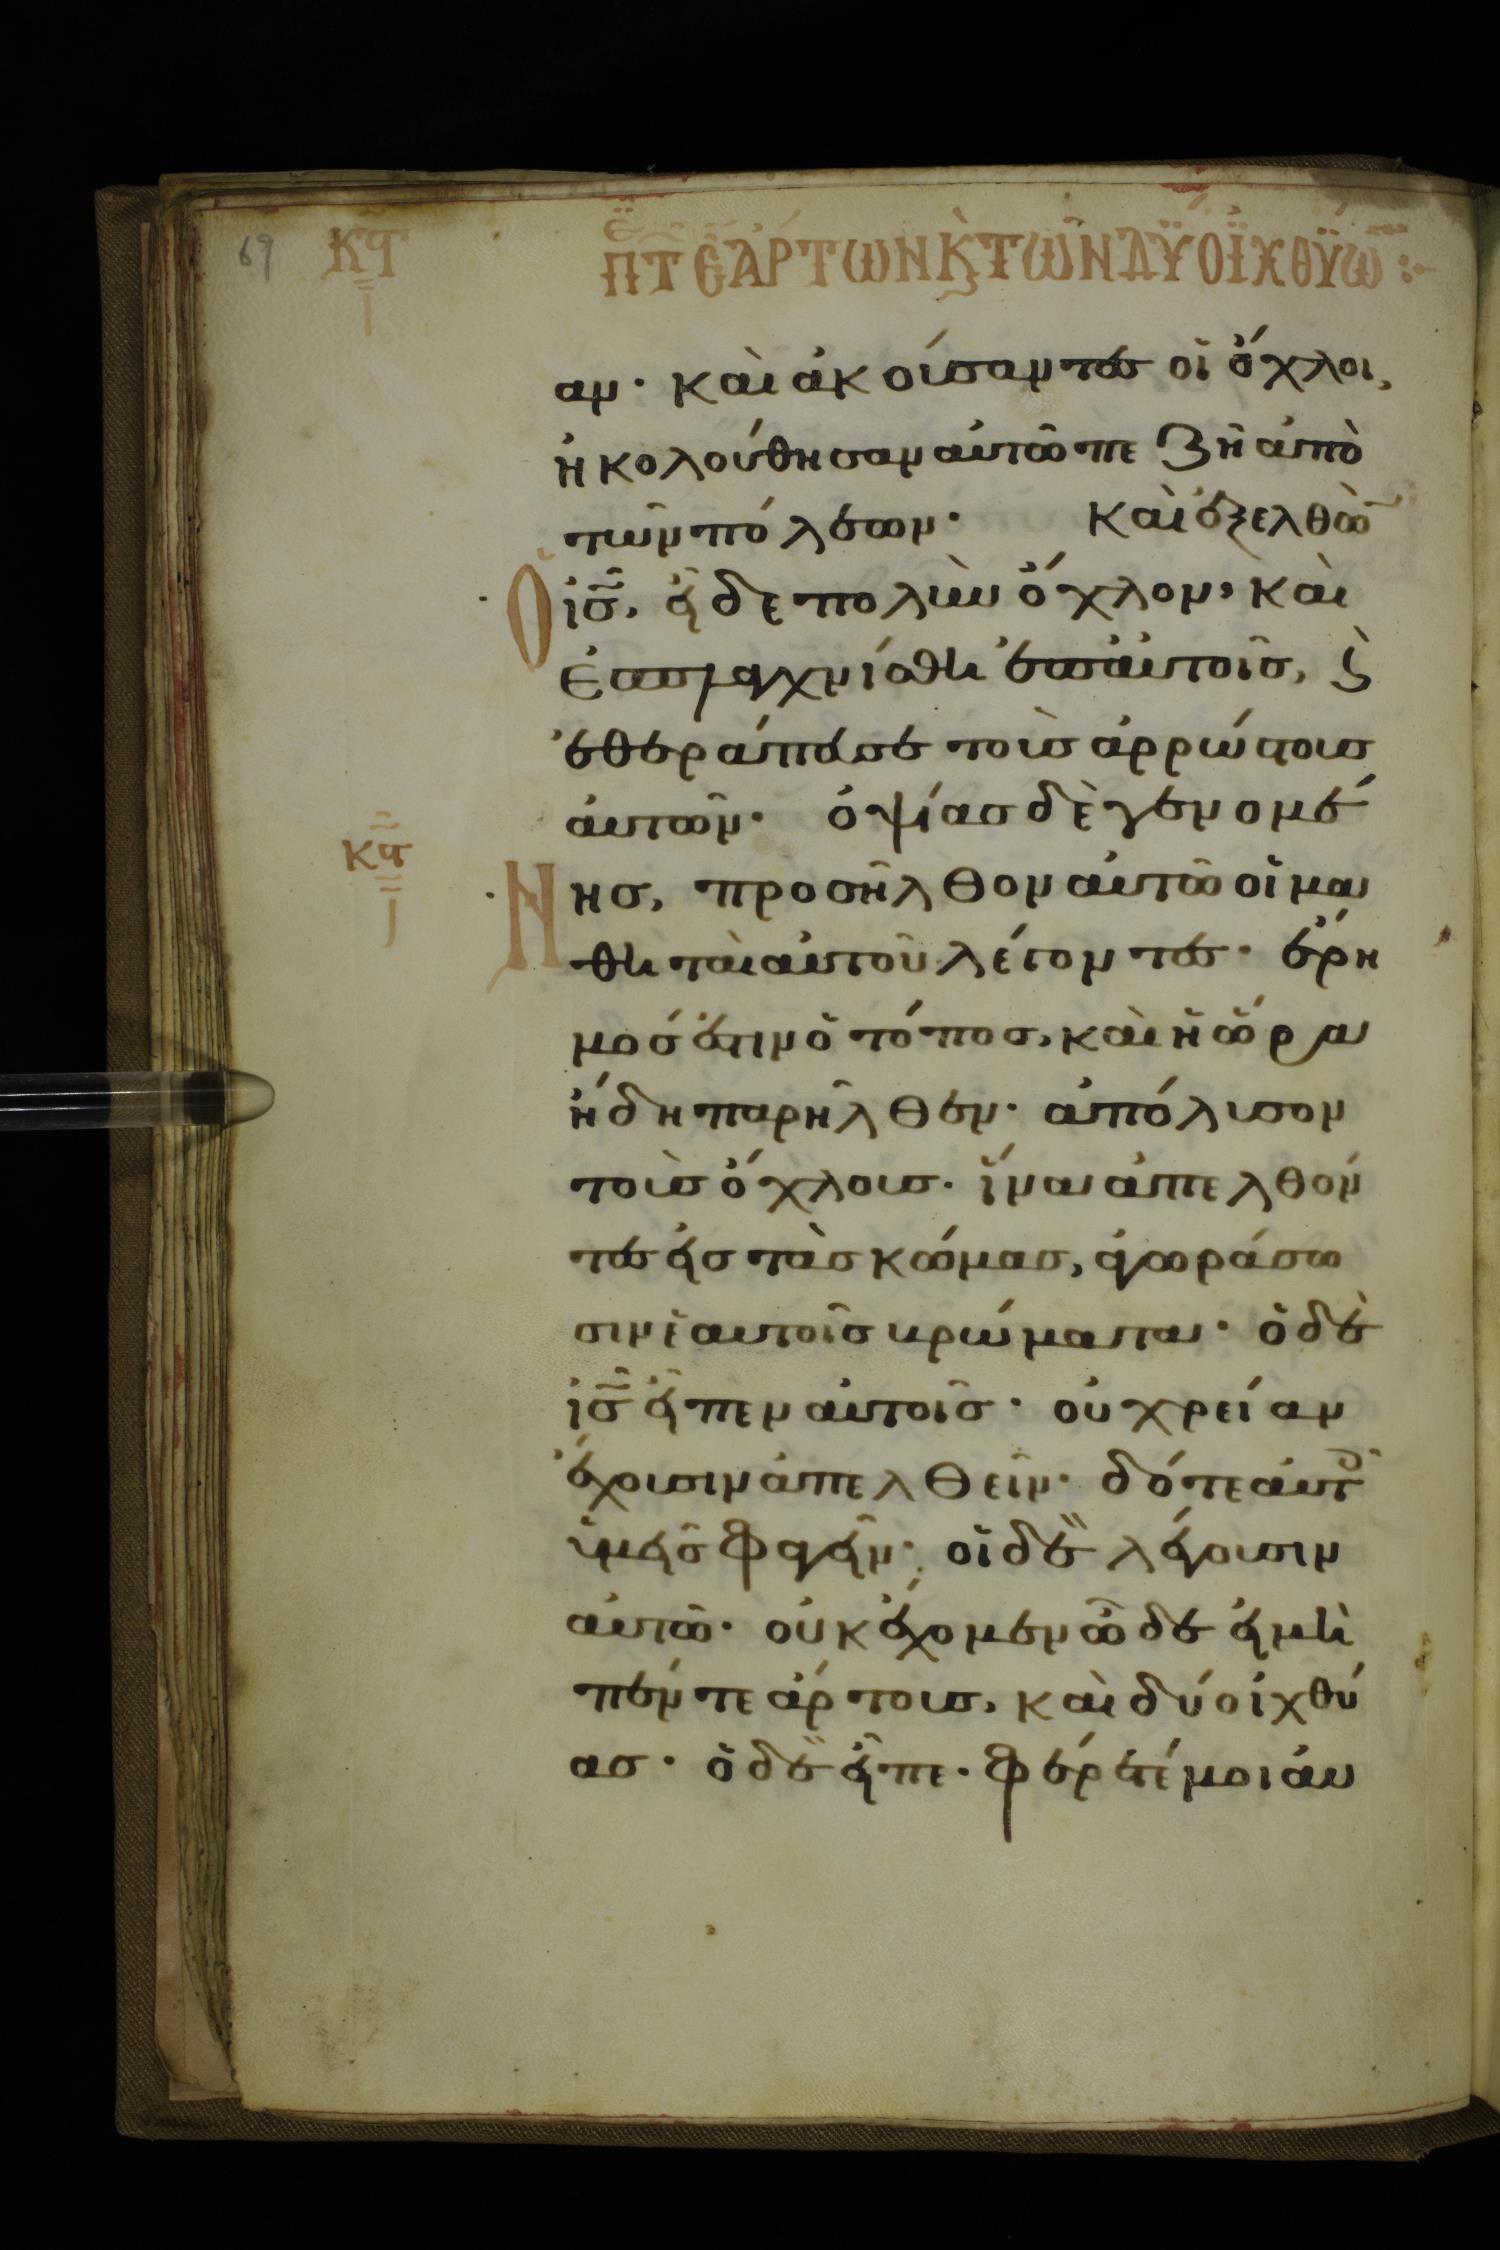 69 ΚϤ Π̅Τ̅ Ε̅ ἌΡΤΩΝ Κ̀ ΤΩ͂Ν ΔΫ́Ο ἸΧΘΫ́Ω
αν· καὶ ἀκούσαντες οἱ ὄχλοι,
ἠκολούθησαν αὐτῶ πεζῆ ἀπὸ
τῶν πόλεων· Καὶ ἐξελθὼ̅
Ὁ ἰ̅ς̅, εἶδε πολὺν ὄχλον, καὶ
ἐσπλαγχνίσθη ἐπ' αὐτοῖς, ϗ
ἐθεράπευσε τοὺς ἀρρώστους
αὐτῶν· ὀψίας δὲ γενομέ
Νης, προσῆλθον αὐτῶ οἱ μα
θηταὶ αὐτοῦ λέγοντες· ἔρη
μός ἐστιν ὁ τόπος, καὶ ἡ ὥρα
ἤδη παρῆλθεν· ἀπόλυσον
τοὺς ὄχλους· ἵνα ἀπελθόν
τες εἰς τὰς κώμας, ἀγοράσω
σιν ἑαυτοῖς βρώματα· ὁ δὲ
ἰ̅ς̅ εἶπεν αὐτοῖς· οὐ χρείαν
ἔχουσιν ἀπελθεῖν· δότε αὐτ̅
ὑμεῖς φαγεῖν· οἱ δὲ λέγουσιν
αὐτῶ· οὐκ ἔχομεν ὧδε εἰ μὴ
πέντε ἄρτους, καὶ δύο ἰχθύ
ας· ὁ δὲ εἶπε· φέρετέ μοι αὐ
ΚϤ